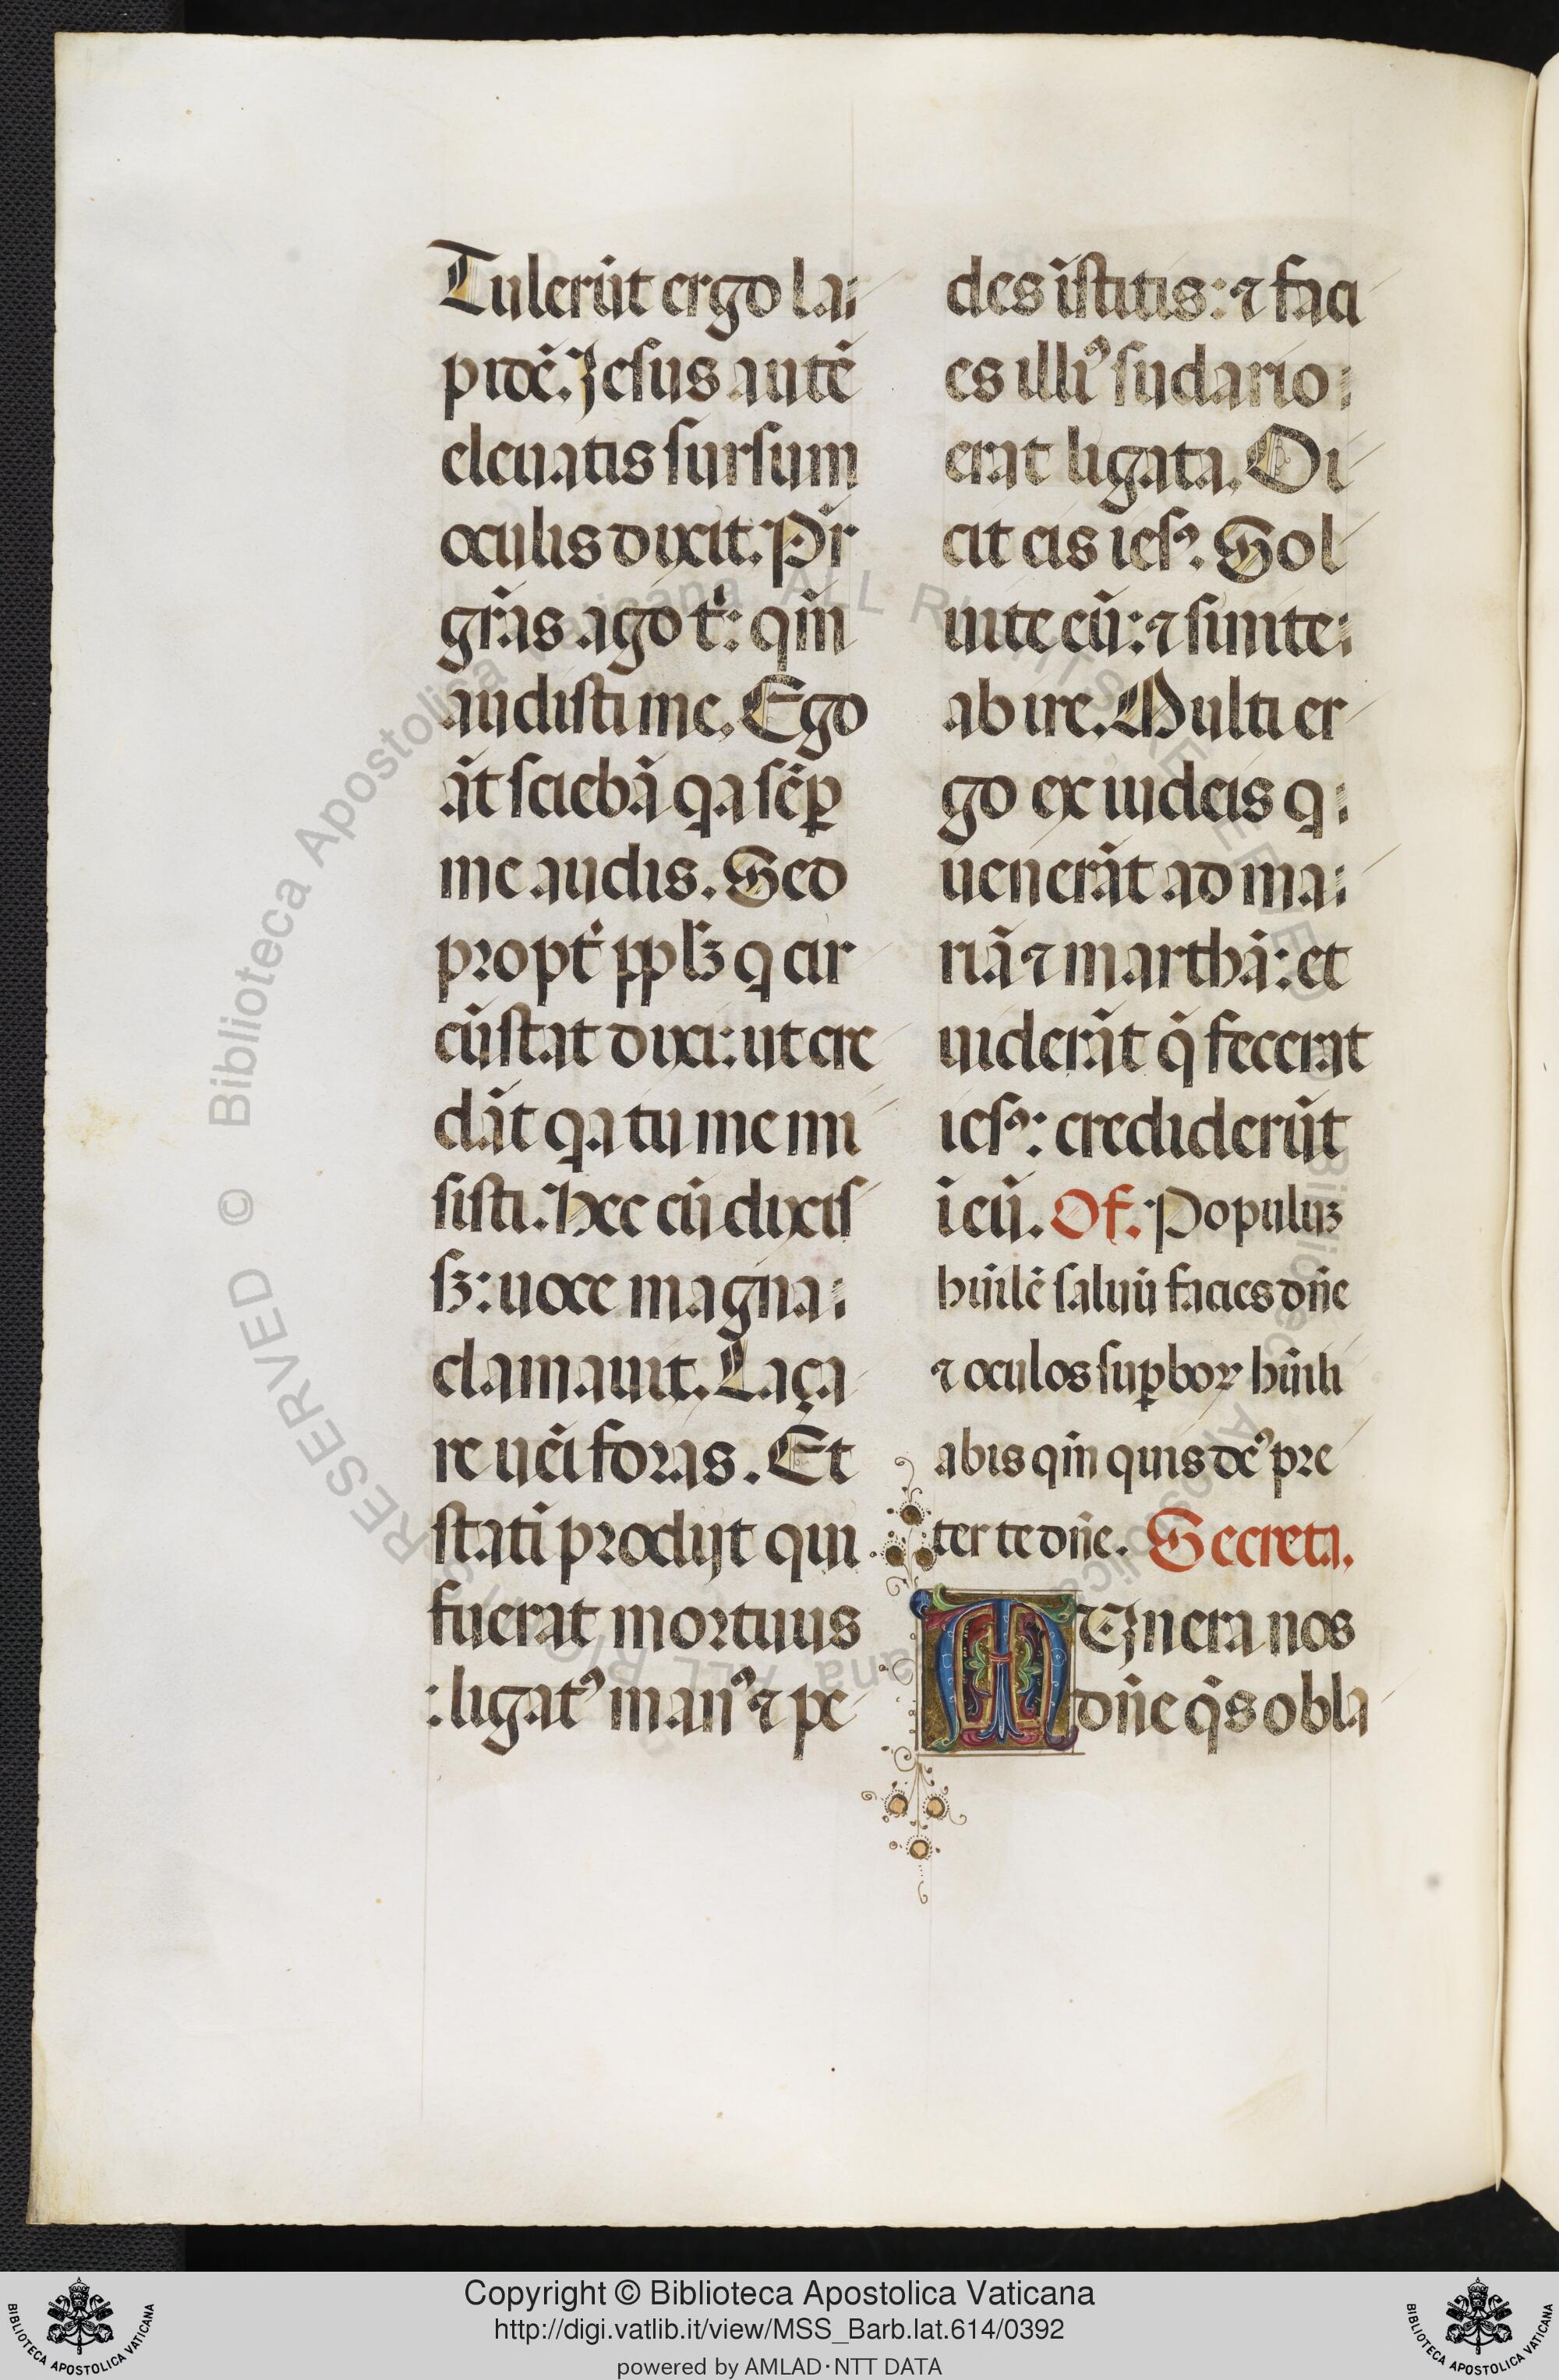 Tulerūt ergo la⁝
pidē. Jesus autē
eleuatis sursum
oculis dixit. Pr̄
gr̄as ago t': qm̄
audisti me. Ego
āt sciebā qa sēp
me audis. Sed
propt' pplꝫ q cir
cūstat dixi: ut cre
dāt qa tu me mi
sisti. Hec cū dixis
sꝫ: uoce magna⁝
clamauit. Laça
re uēi foras. Et
statī prodijt qui
fuerat mortuus
:ligatꝰ manꝰ ⁊ pe
des īstitis: ⁊ faci
es illiꝰ sudario⁝
erat ligata. Di
cit eis iesꝰ. Sol
uite eū: ⁊ sinite⁝
abire. Multi er
go ex iudeis q⁝
uenerāt ad ma⁝
riā ⁊ marthā: et
uiderāt q̄ fecerat
iesꝰ: crediderūt
ī eū. Of. Populuꝫ
hūilē saluū facies dn̄e
⁊ oculos suꝑboꝝ hūili
abis qm̄ quis dēꝰ pre
ter te dn̄e. Secreta.
MUnera nos
dn̄e q̄s obla
© Biblioteca Apostolica Vaticana ALL RIGHTS RESERVED
Copyright © Biblioteca Apostolica Vaticana
http://digi.vatlib.it/view/MSS_Barb.lat.614/0392
powered by AMLAD·NTT DATA
BIBLIOTECA APOSTOLICA VATICANA
BIBLIOTECA APOSTOLICA VATICANA